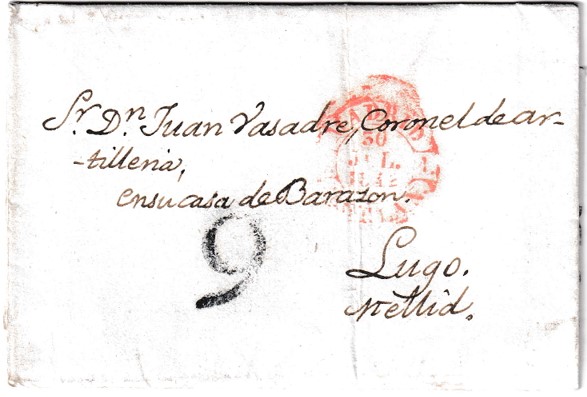 Sr. Dn. Juan Vasadre, Coronel de ar-
-tilleria,
en su casa de Barazon.
9
Lugo.
Mellid.
30
JUL
1842